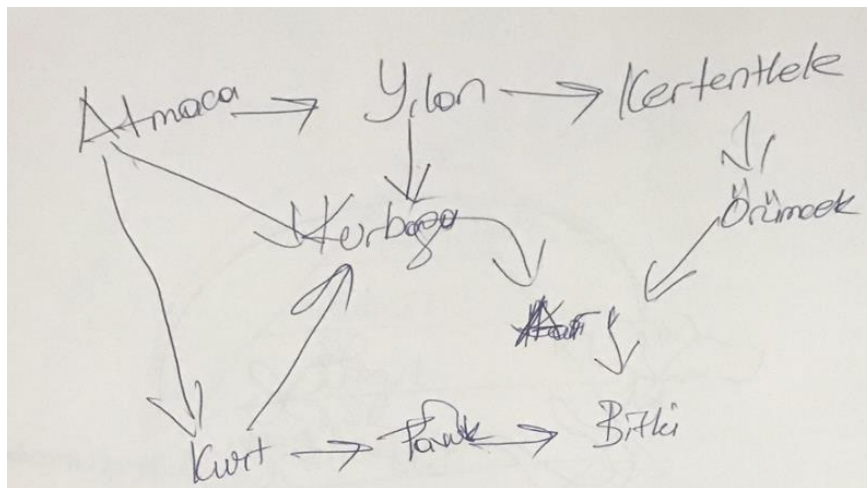 Atmaca Yılan Kertenkele
Kurbağa Örümcek
Kurt Tavuk Bitki